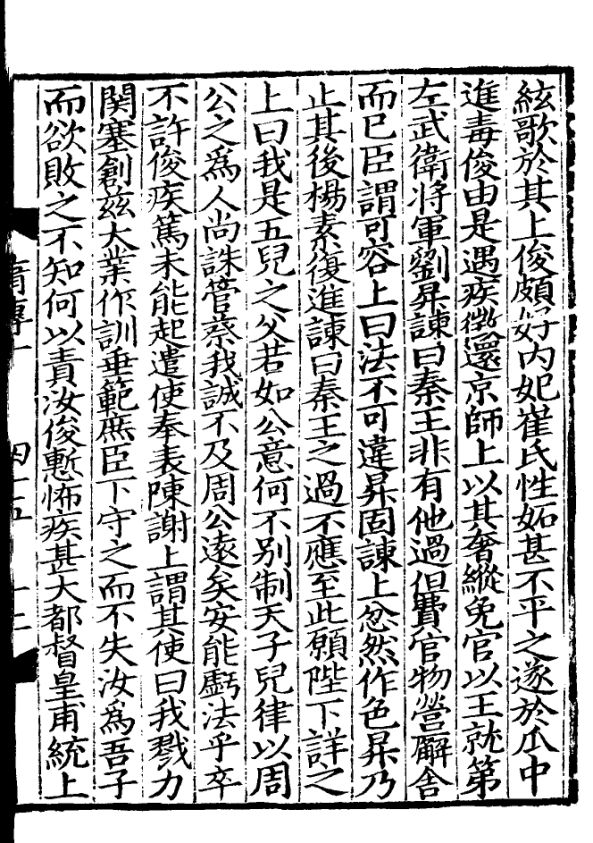 絃歌於其上俊頗好内妃崔氏性妬甚不平之遂於瓜中
進毒俊由是遇疾徵還京師上以其奢縱免官以王就第
左武衛將軍劉昇諫曰秦王非有他過但費官物營廨舍
而已臣謂可容上曰法不可違昇固諫上忿然作色昇乃
止其後楊素復進諫曰秦王之過不應至此願陛下詳之
上曰我是五兒之父若如公意何不別制天子兒律以周
公之爲人尚誅管蔡我誠不及周公遠矣安能虧法乎卒
不許俊疾篤未能起遣使奉表陳謝上謂其使曰我戮力
関塞創兹大業作訓垂範庶臣下守之而不失汝爲吾子
而欲敗之不知何以責汝俊慙怖疾甚大都督皇甫統上
傳十 四十五 十二